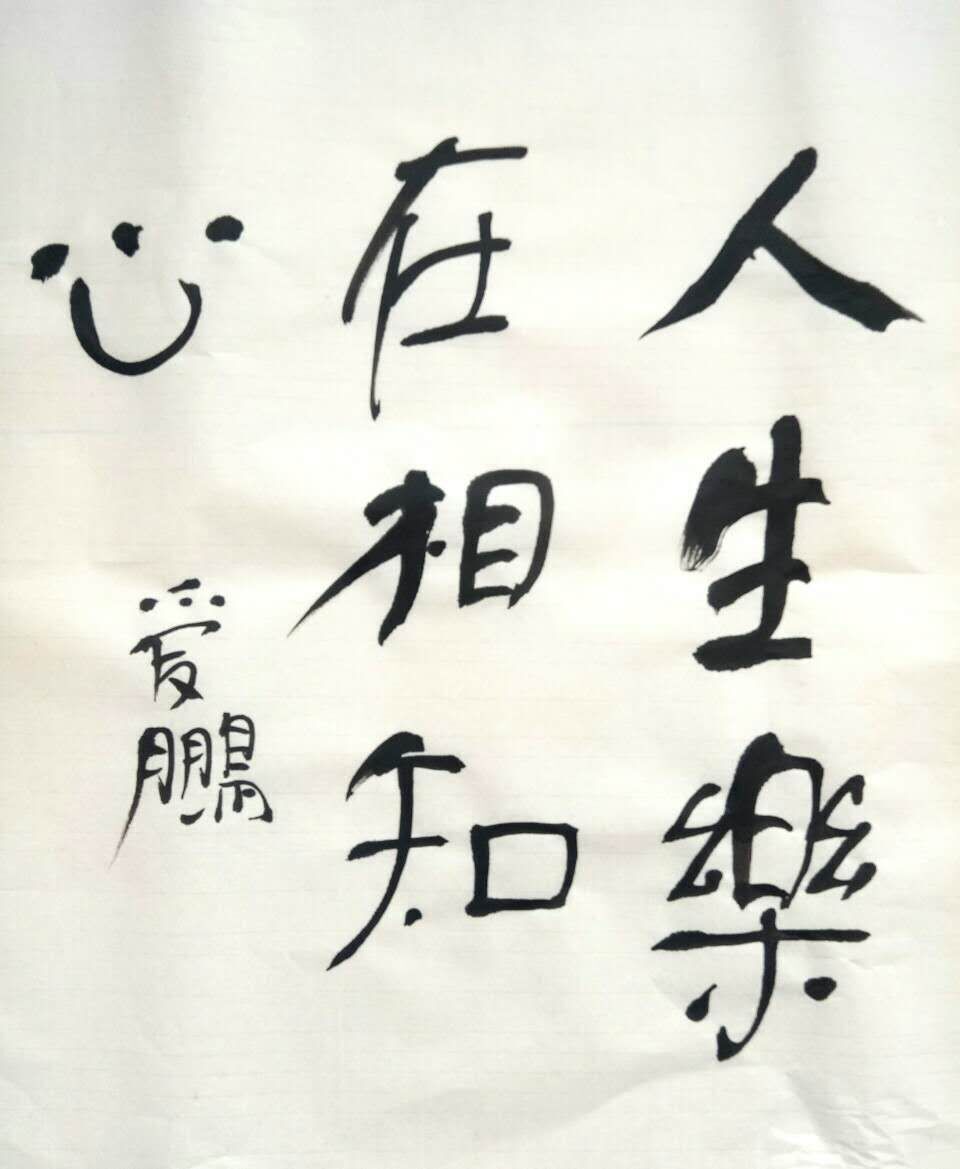 人生樂
在相知
心
爱鵬